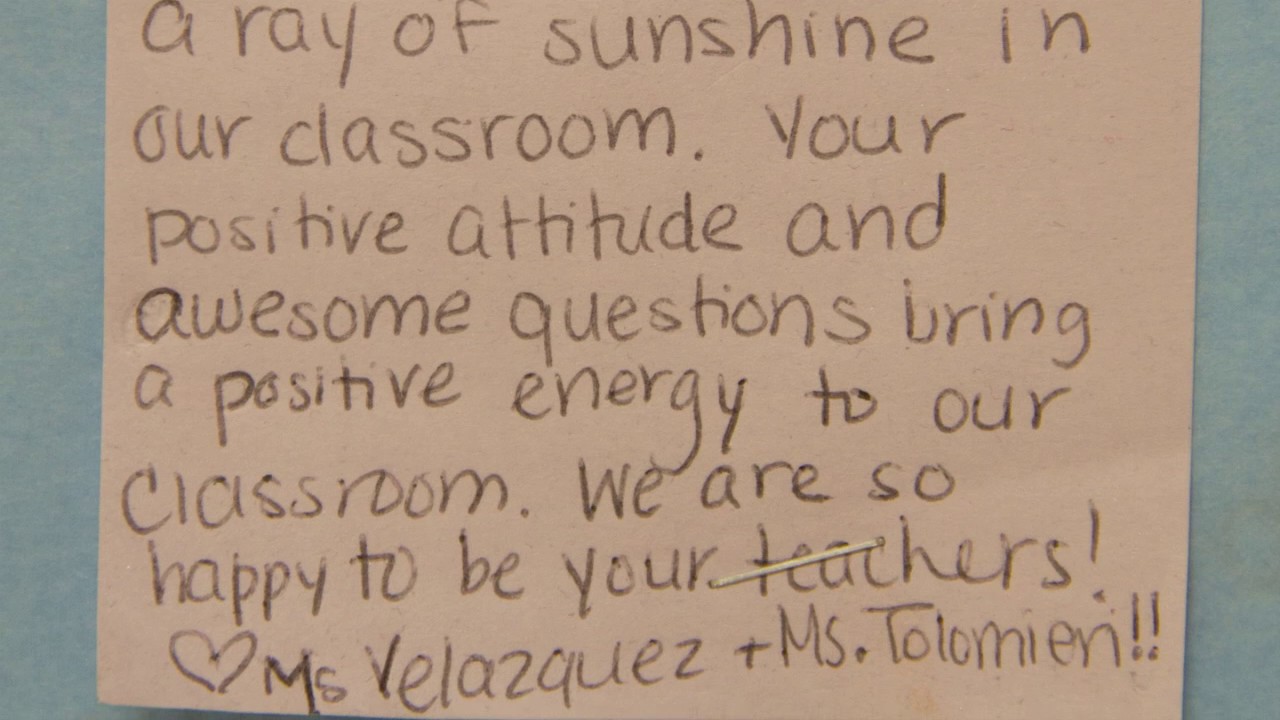 a ray of sunshine in
our classroom. Your
positive attitude and
awesome questions bring
a positive energy to our
classroom. We are so
happy to be your teachers!
♡ Ms Velazquez + Ms. Tolomieri!!